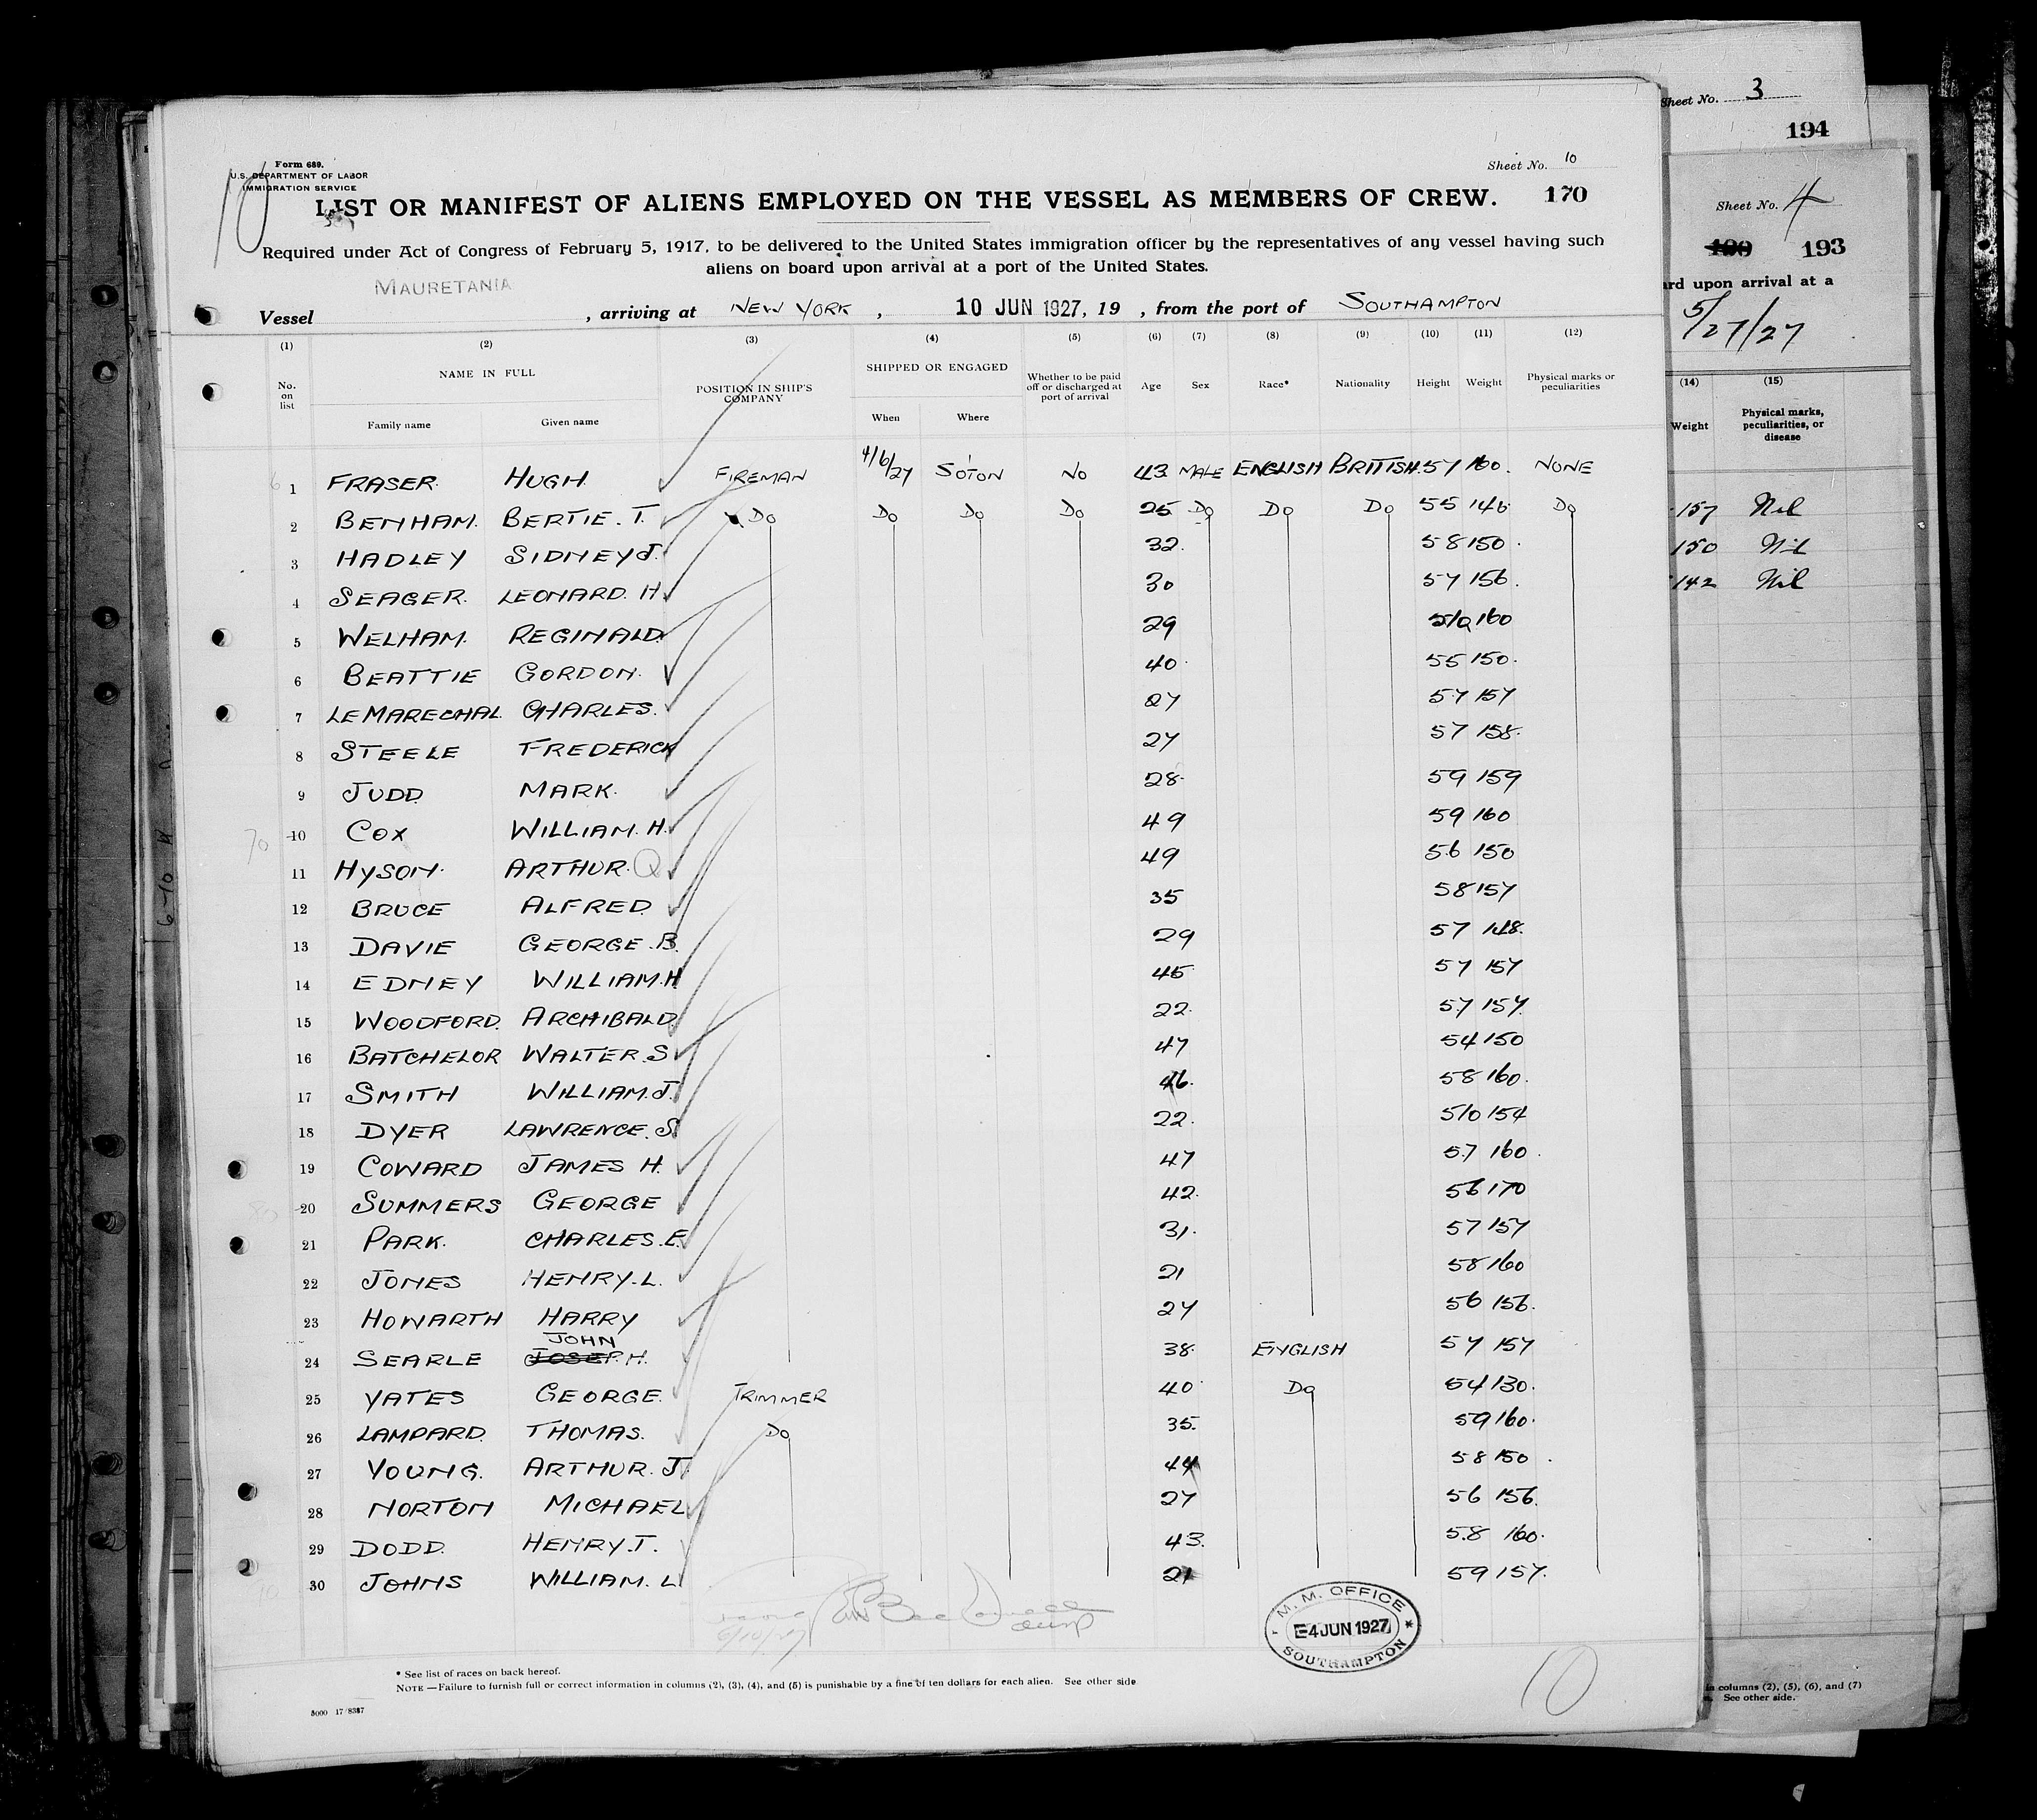 Sheet No. 3
194
Sheet No. 4
190 193
ard upon arrival at a
5/27/27
(14) (15)
Weight Physical marks, peculiarities, or disease
157 Nil
150 Nil
142 Nil
in columns (2), (5), (6), and (7)
See other side.
10
Form 689.
U.S. DEPARTMENT OF LABOR
IMMIGRATION SERVICE
Sheet No. 10
LIST OR MANIFEST OF ALIENS EMPLOYED ON THE VESSEL AS MEMBERS OF CREW. 170
Required under Act of Congress of February 5, 1917, to be delivered to the United States immigration officer by the representatives of any vessel having such
aliens on board upon arrival at a port of the United States.
Vessel MAURETANIA, arriving at NEW YORK, 10 JUN 1927, 19 , from the port of SOUTHAMPTON
(1) (2) (3) (4) (5) (6) (7) (8) (9) (10) (11) (12)
No. on list NAME IN FULL POSITION IN SHIP'S COMPANY SHIPPED OR ENGAGED Whether to be paid off or discharged at port of arrival Age Sex Race* Nationality Height Weight Physical marks or peculiarities
Family name Given name When Where
1 FRASER HUGH FIREMAN 4/6/27 S'OTON NO 43 MALE ENGLISH BRITISH 57 160 NONE
2 BENHAM BERTIE.T. Do Do Do Do 25 Do Do Do 55 146 Do
3 HADLEY SIDNEY J. 32 58 150
4 SEAGER LEONARD H. 30 57 156
5 WELHAM REGINALD 29 510 160
6 BEATTIE GORDON 40 55 150
7 LE MARECHAL CHARLES 27 57 157
8 STEELE FREDERICK 27 57 158
9 JUDD MARK 28 59 159
10 COX WILLIAM.H. 49 59 160
11 HYSON ARTHUR 49 56 150
12 BRUCE ALFRED 35 58 157
13 DAVIE GEORGE.B. 29 57 148
14 EDNEY WILLIAM.H 45 57 157
15 WOODFORD ARCHIBALD 22 57 157
16 BATCHELOR WALTER.S 47 54 150
17 SMITH WILLIAM.J. 46 58 160
18 DYER LAWRENCE.S 22 510 154
19 COWARD JAMES H. 47 57 160
20 SUMMERS GEORGE 42 56 170
21 PARK CHARLES.E. 31 57 157
22 JONES HENRY.L. 21 58 160
23 HOWARTH HARRY 27 56 156
24 SEARLE JOHN JOSEP.H. 38 ENGLISH 57 157
25 YATES GEORGE TRIMMER 40 Do 54 130
26 LAMPARD THOMAS Do 35 59 160
27 YOUNG ARTHUR.J. 44 58 150
28 NORTON MICHAEL 27 56 156
29 DODD HENRY.T. 43 58 160
30 JOHNS WILLIAM.L 21 59 157
6/10/27
M. M. OFFICE
4 JUN 1927
SOUTHAMPTON
10
* See list of races on back hereof.
NOTE.—Failure to furnish full or correct information in columns (2), (3), (4), and (5) is punishable by a fine of ten dollars for each alien. See other side
5000 17/8387